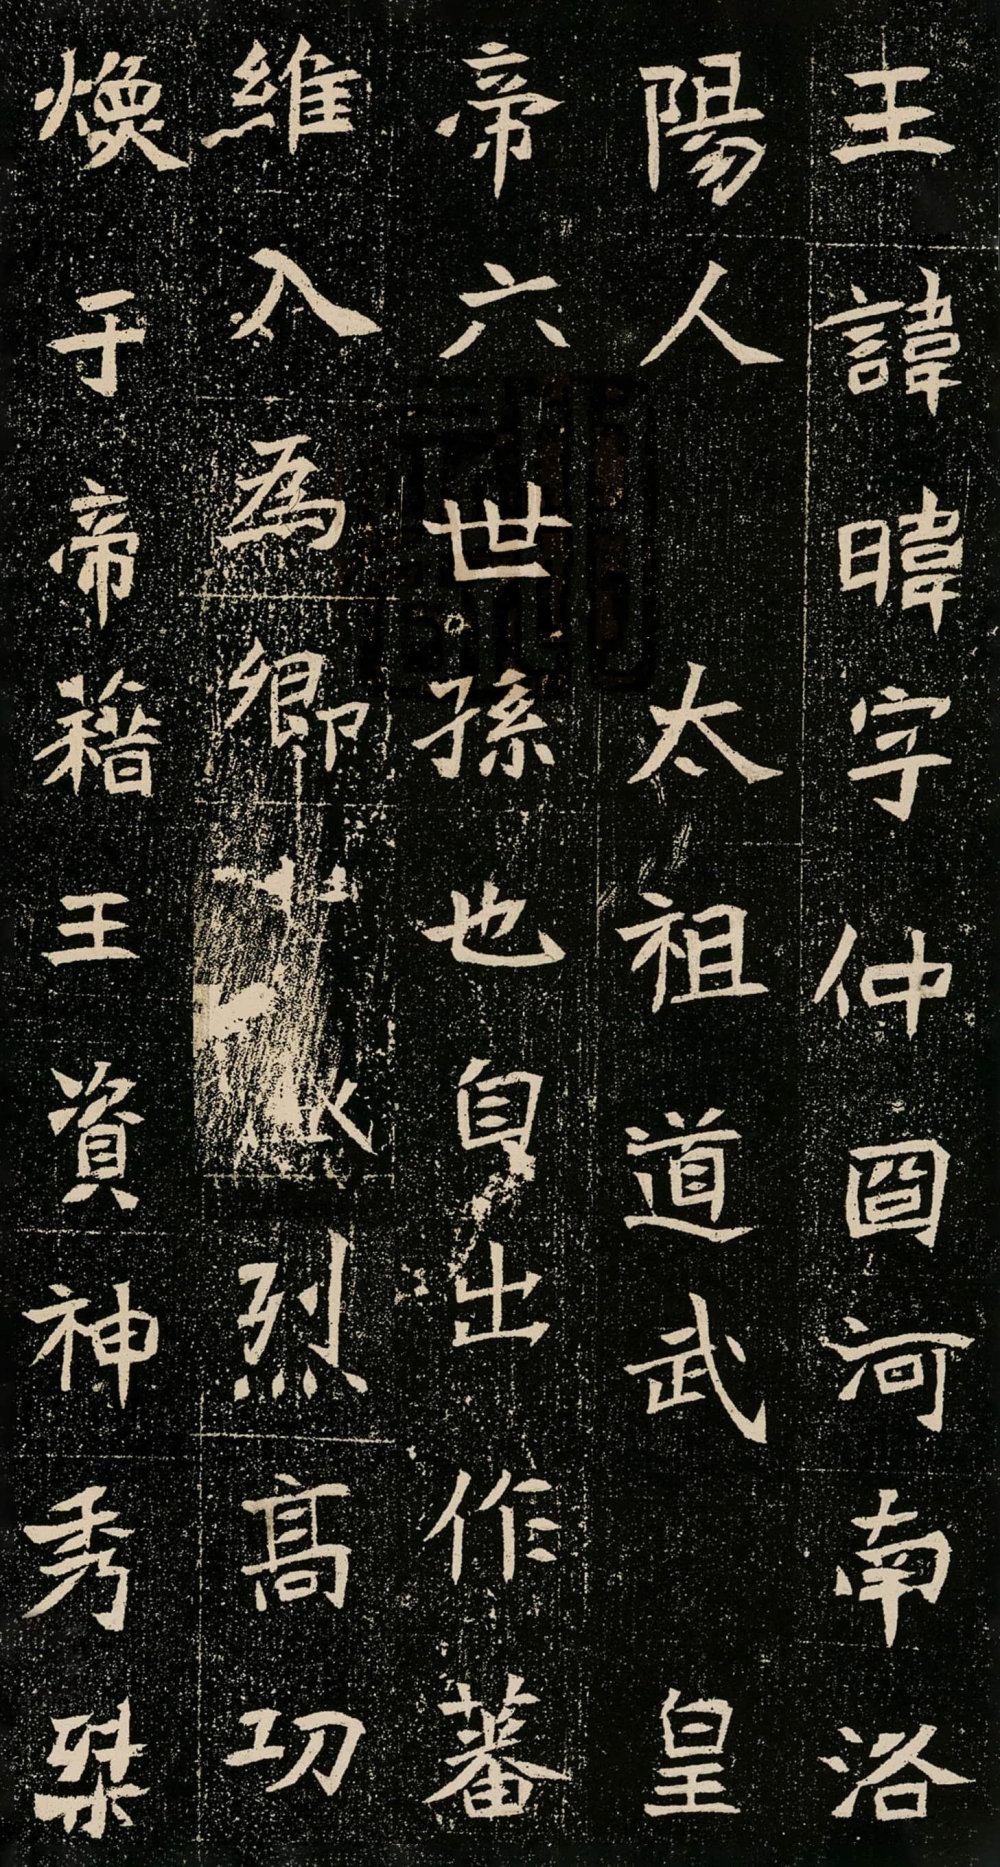 王諱暐字仲冏河南洛
陽人太祖道武皇
帝六世孫也自出作蕃
維入為卿士烈髙功
煥于帝籍王資神秀桀